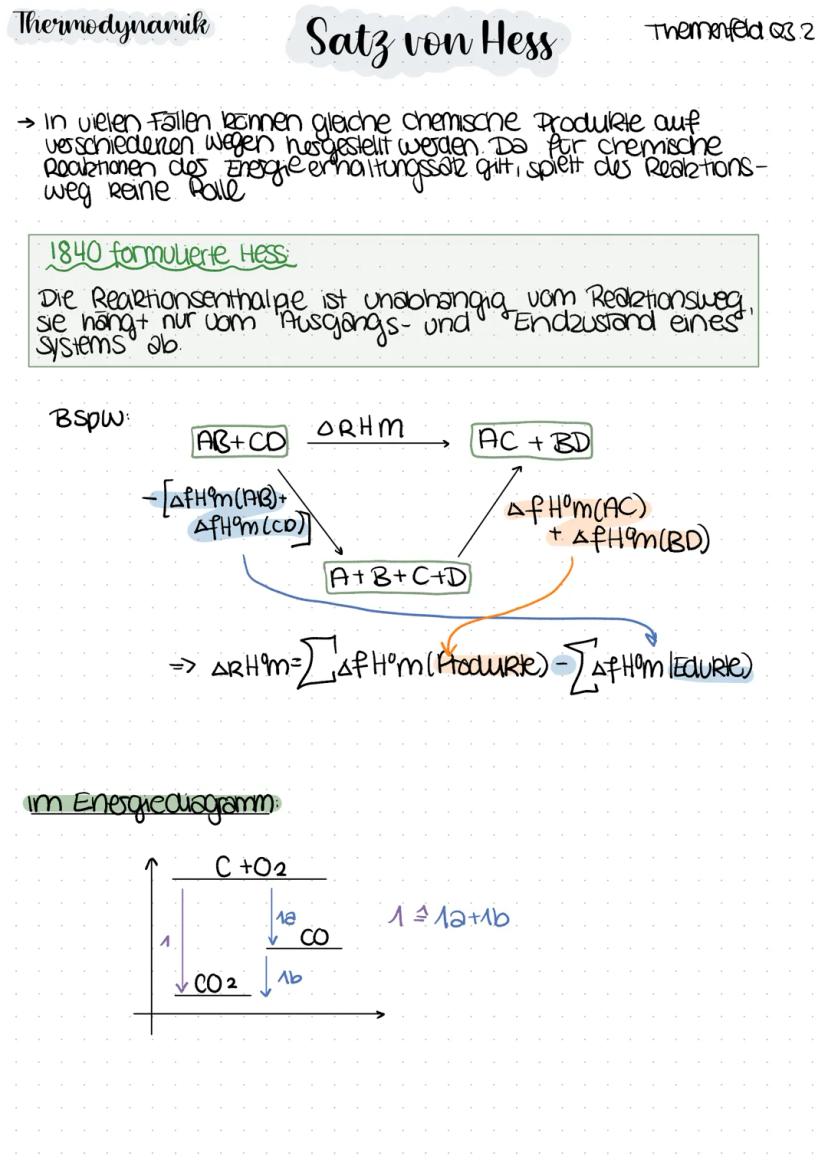 Thermodynamik
Satz von Hess
Themenfeld Q3.2
→ In vielen Fällen können gleiche chemische Produkte auf
verschiedenen Wegen hergestellt werden. Da für chemische
Reaktionen des Energieerhaltungssatz gilt, spielt des Reaktions-
weg keine Rolle
1840 formulierte Hess:
Die Reaktionsenthalpie ist unabhängig vom Reaktionsweg,
sie hängt nur vom Ausgangs- und Endzustand eines
Systems ab.
Bspw:
AB+CD
ΔRHm
AC + BD
-[ΔfH°m(AB)+
ΔfH°m(CD)]
ΔfH°m(AC)
+ ΔfH°m(BD)
A+B+C+D
=> ΔRH°m=∑ΔfH°m(Produkte)-∑ΔfH°m(Edukte)
im Energiediagramm:
C +O2
1
1a
CO
1 ≙ 1a+1b
CO2
1b